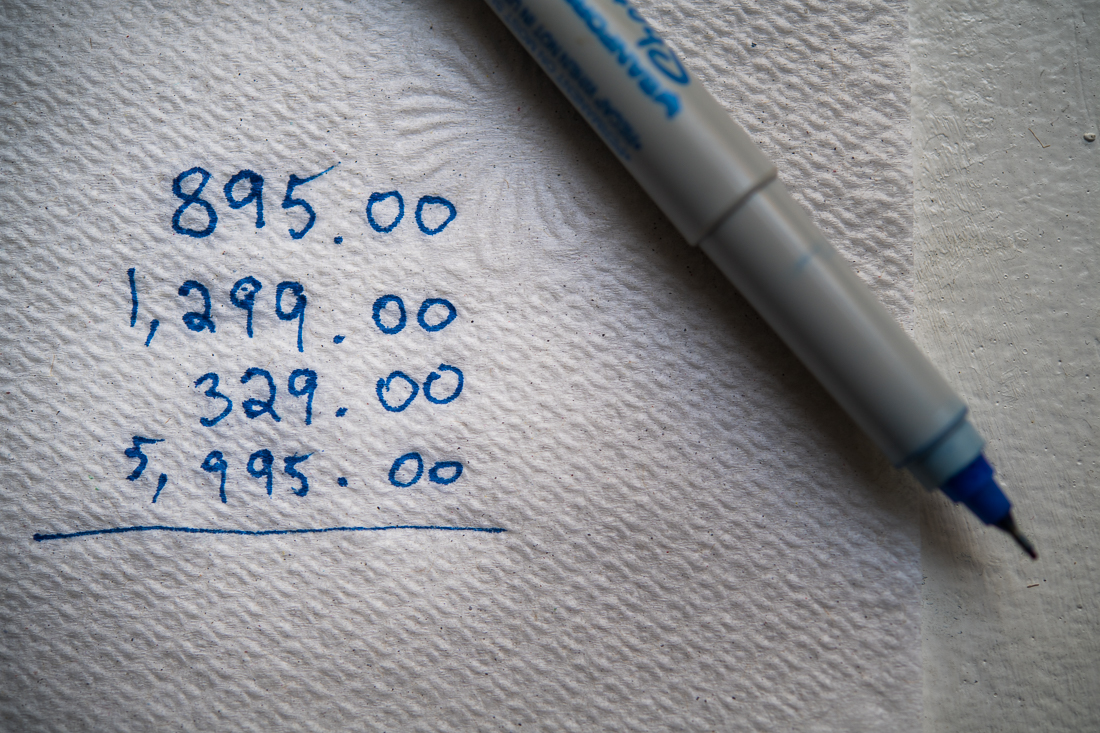 895.00
1,299.00
329.00
5,995.00